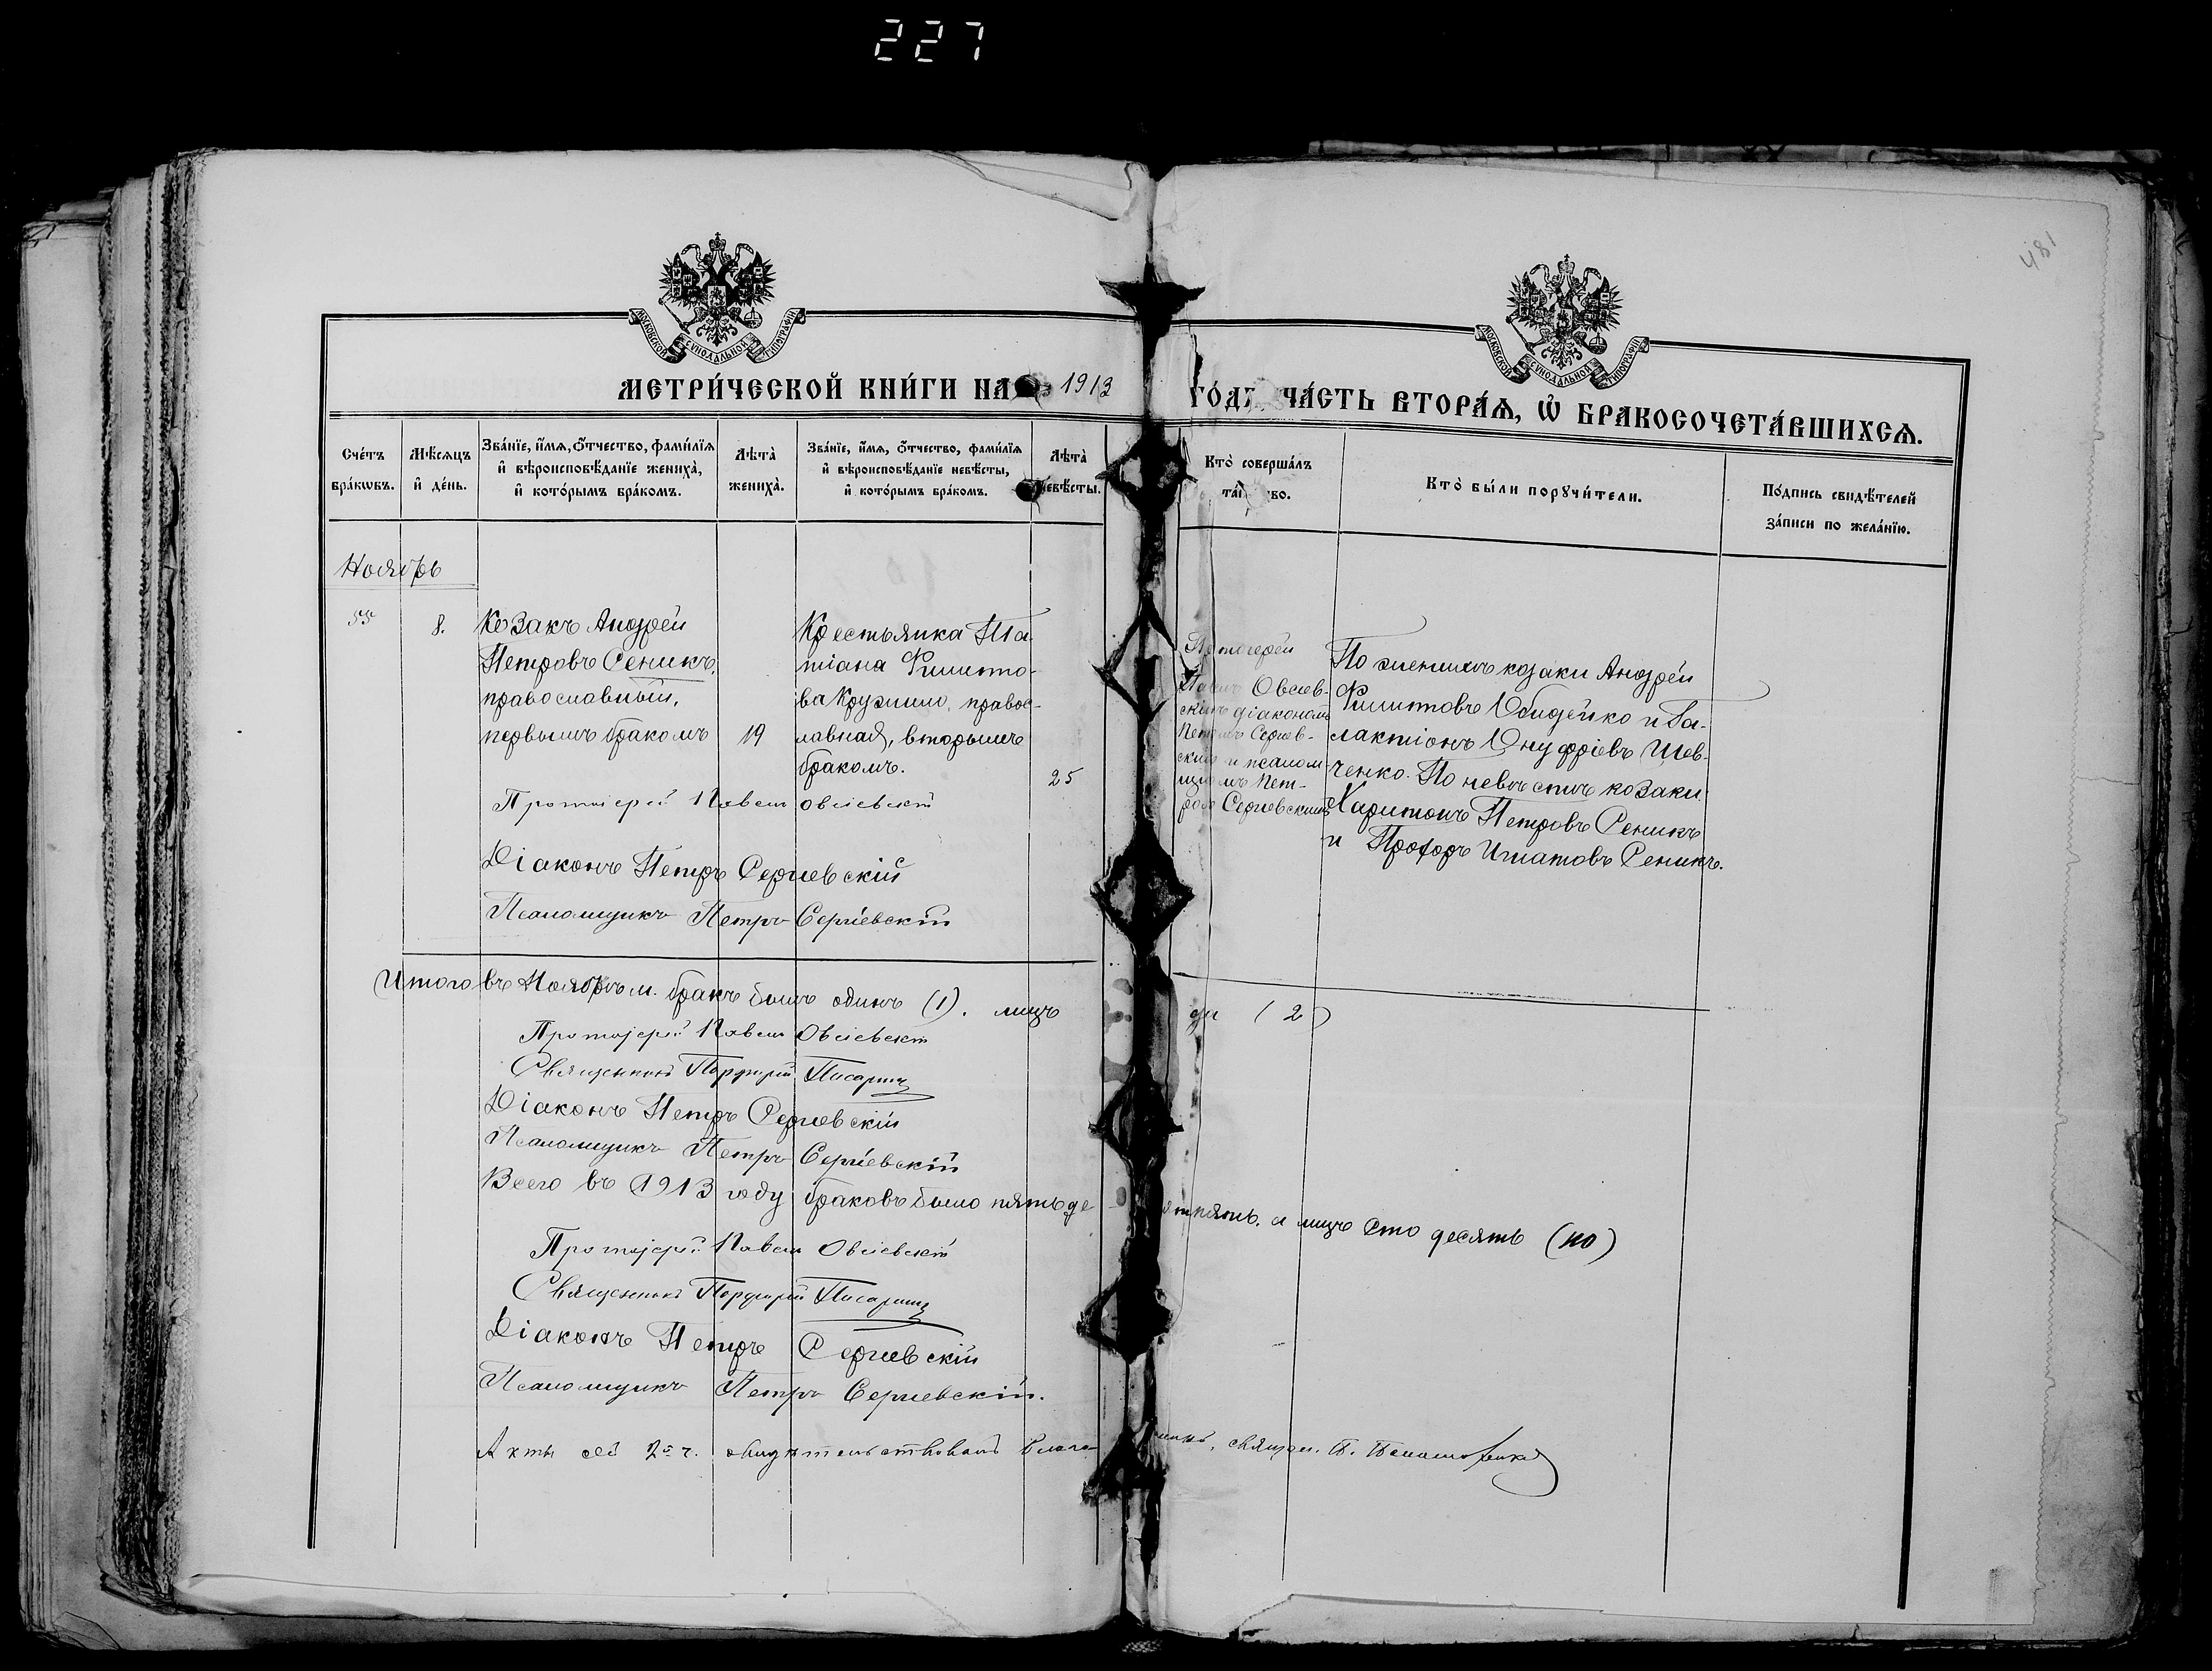 227
481
МОСКОВСКОЙ СУНОДАЛЬНОЙ ТИПОГРАФІИ
МОСКОВСКОЙ СУНОДАЛЬНОЙ ТИПОГРАФІИ
МЕТРИ́ЧЕСКОЙ КНИ́ГИ НА 1913
ГО́ДЪ ЧА́СТЬ ВТОРА́Ѧ, Ѽ БРАКОСОЧЕТА́ВШИХСѦ.
Сче́тъ
бра́кѡвъ.
Мѣ́сяцъ
и҆ де́нь.
Зва́нїе, и҆́мѧ, ѻ҆́тчество, фами́лїѧ
и҆ вѣроисповѣ́данїе жениха̀,
и҆ кото́рымъ бра́комъ.
Лѣта̀
жениха̀.
Зва́нїе, и҆́мѧ, ѻ҆́тчество, фами́лїѧ
и҆ вѣроисповѣ́данїе невѣ́сты,
и҆ кото́рымъ бра́комъ.
Лѣта̀
невѣ́сты.
Кто̀ соверша́лъ
та́инство.
Кто̀ бы́ли порꙋчи́тели.
По́дпись свидѣ́телей
за́писи по жела́нїю.
Ноябрь
55
8.
Козакъ Андрей
Петровъ Сеникъ,
православный,
первымъ бракомъ
19
Крестьянка Та-
тіана Филиппо-
ва Кружило, правос-
лавная, вторымъ
бракомъ.
25
Протоіерей
Павелъ Овсіев-
скій съ діакономъ
Петромъ Сергіев-
скимъ и псалом-
щикомъ Пет-
ромъ Сергіевскимъ
По женихѣ козаки Андрей
Филипповъ Обидейко и Га-
лактіонъ Онуфріевъ Шев-
ченко. По невѣстѣ козаки
Харитонъ Петровъ Сеникъ
и Прохоръ Игнатовъ Сеникъ.
Протоіерей Павелъ Овсіевскій
Діаконъ Петръ Сергіевскій
Псаломщикъ Петръ Сергіевскій
Итого въ Ноябрѣ м. бракъ былъ одинъ (1). лицъ два (2)
Протоіерей Павелъ Овсіевскій
Священникъ Порфирій
Діаконъ Петръ Сергіевскій
Псаломщикъ Петръ Сергіевскій
Всего въ 1913 году браковъ было пятьдесятъ пять, а лицъ сто десять (110)
Протоіерей Павелъ Овсіевскій
Священникъ Порфирій
Діаконъ Петръ Сергіевскій
Псаломщикъ Петръ Сергіевскій.
Акты сей 2й ч. свидѣтельствовалъ Благочинный, священ. П.